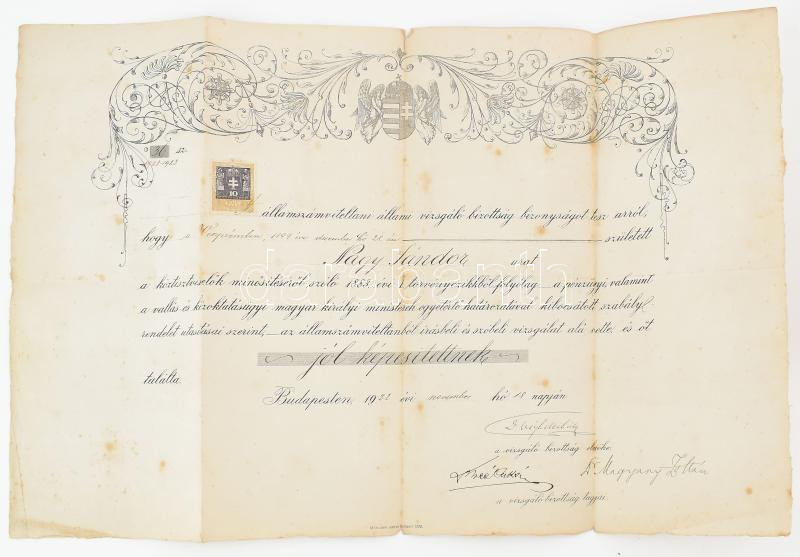 31 sz.
1922-1923
10
Az államszámviteltani állami vizsgáló bizottság bizonyságot tesz arról,
hogy a Veszprémben, 1899 évi december hó 28 án született
Nagy Sándor urat
a köztisztviselők minősítéséről szóló 1883. évi I. törvényczikkből folyólag a pénzügyi, valamint
a vallás és közoktatásügyi magyar királyi miniszterek egyetértő határozatával kibocsátott szabály-
rendelet utasításai szerint, az államszámviteltanból írásbeli és szóbeli vizsgálat alá vette, és őt
jól képesítettnek
találta.
Budapesten, 1922 évi november hó 18 napján
a vizsgáló bizottság elnöke.
Dr Magyary Zoltán
a vizsgáló bizottság tagjai.